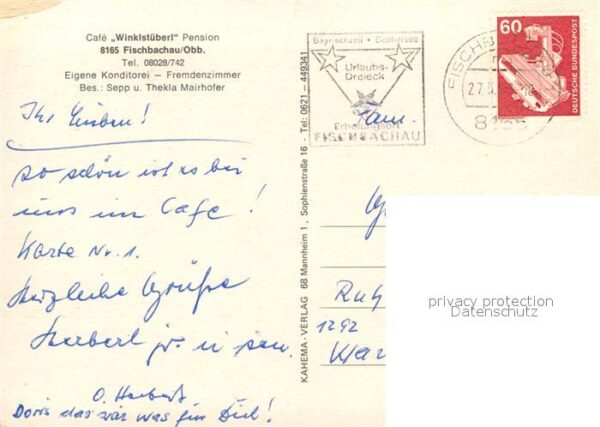 Café „Winklstüberl" Pension
8165 Fischbachau/Obb.
Tel. 08028/742
Eigene Konditorei – Fremdenzimmer
Bes.: Sepp u. Thekla Mairhofer
Ihr Lieben!
so schön ist es bei
uns im Cafe!
Karte Nr. 1.
Herzliche Grüße
Herbert jr. u
O. Herbert
Doris das wär was für Dich!
KAHEMA-VERLAG 68 Mannheim 1, Sophienstraße 16 Tel: 0621 – 449341
Bayrischzell • Schliersee
Urlaubs-
Dreieck
Erholungsort
FISCHBACHAU
FISCHB
27.
8165
60
DEUTSCHE BUNDESPOST
Fam.
Ruh
1292
privacy protection
Datenschutz